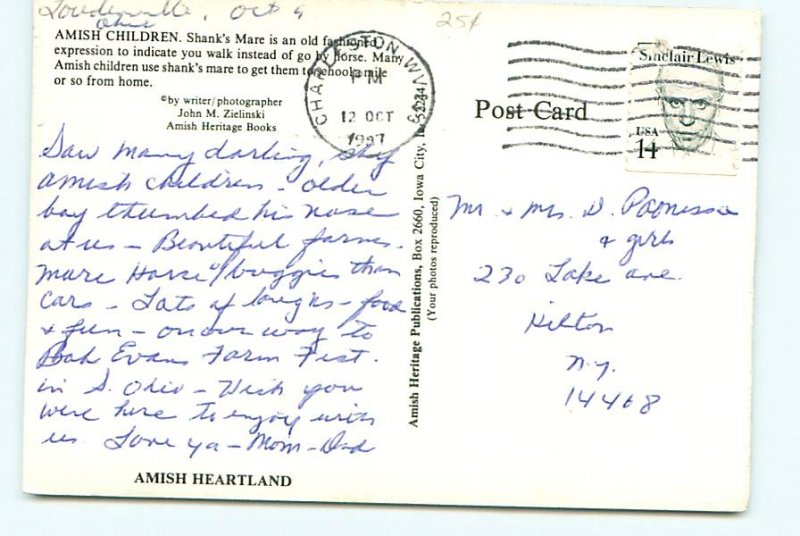 Loudenville, Oct 9
Ohio
25¢
AMISH CHILDREN. Shank's Mare is an old fashioned
expression to indicate you walk instead of go by horse. Many
Amish children use shank's mare to get them to school a mile
or so from home.
©by writer/photographer
John M. Zielinski
Amish Heritage Books
CHARLESTON WV
PM
12 OCT
1987
Sinclair Lewis
USA
14
Post Card
Saw many darling, shy
Amish children - older
boy thumbed his nose
at us - Beautiful farms.
More Horse/buggies than
cars - Lots of laughs - food
& fun - on our way to
Bob Evans Farm Fest.
in S. Ohio - Wish you
were here to enjoy with
us. Love ya - Mom - Dad
AMISH HEARTLAND
Amish Heritage Publications, Box 2660, Iowa City, Ia 52241
(Your photos reproduced)
Mr + Mrs. D. Paonessa
& girls
230 Lake ave.
Hilton
N.y.
14468